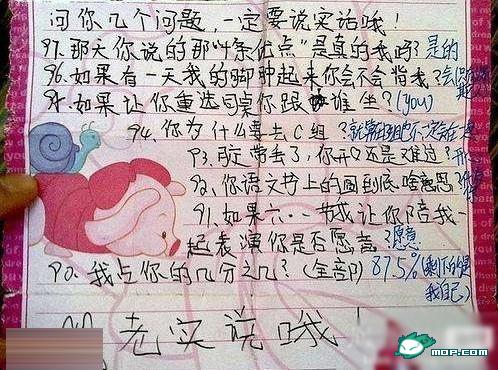 问你几个问题,一定要说实话哦!
97.那天你说的那"4条优点"是真的我吗?是的
96.如果有一天我的脚肿起来你会不会背我?会
95.如果让你重选同桌你跟谁坐?(you)
94.你为什么要去C组?就算
93.胶带丢了,你开心还是难过?开
92.你语文书上的圈到底啥意思?
91.如果六·一节我让你陪我一
起表演你是否愿意?愿意
90.我占你的几分之几?(全部)87.5%(剩下的是
我自己)
老实说哦!
MOP.COM